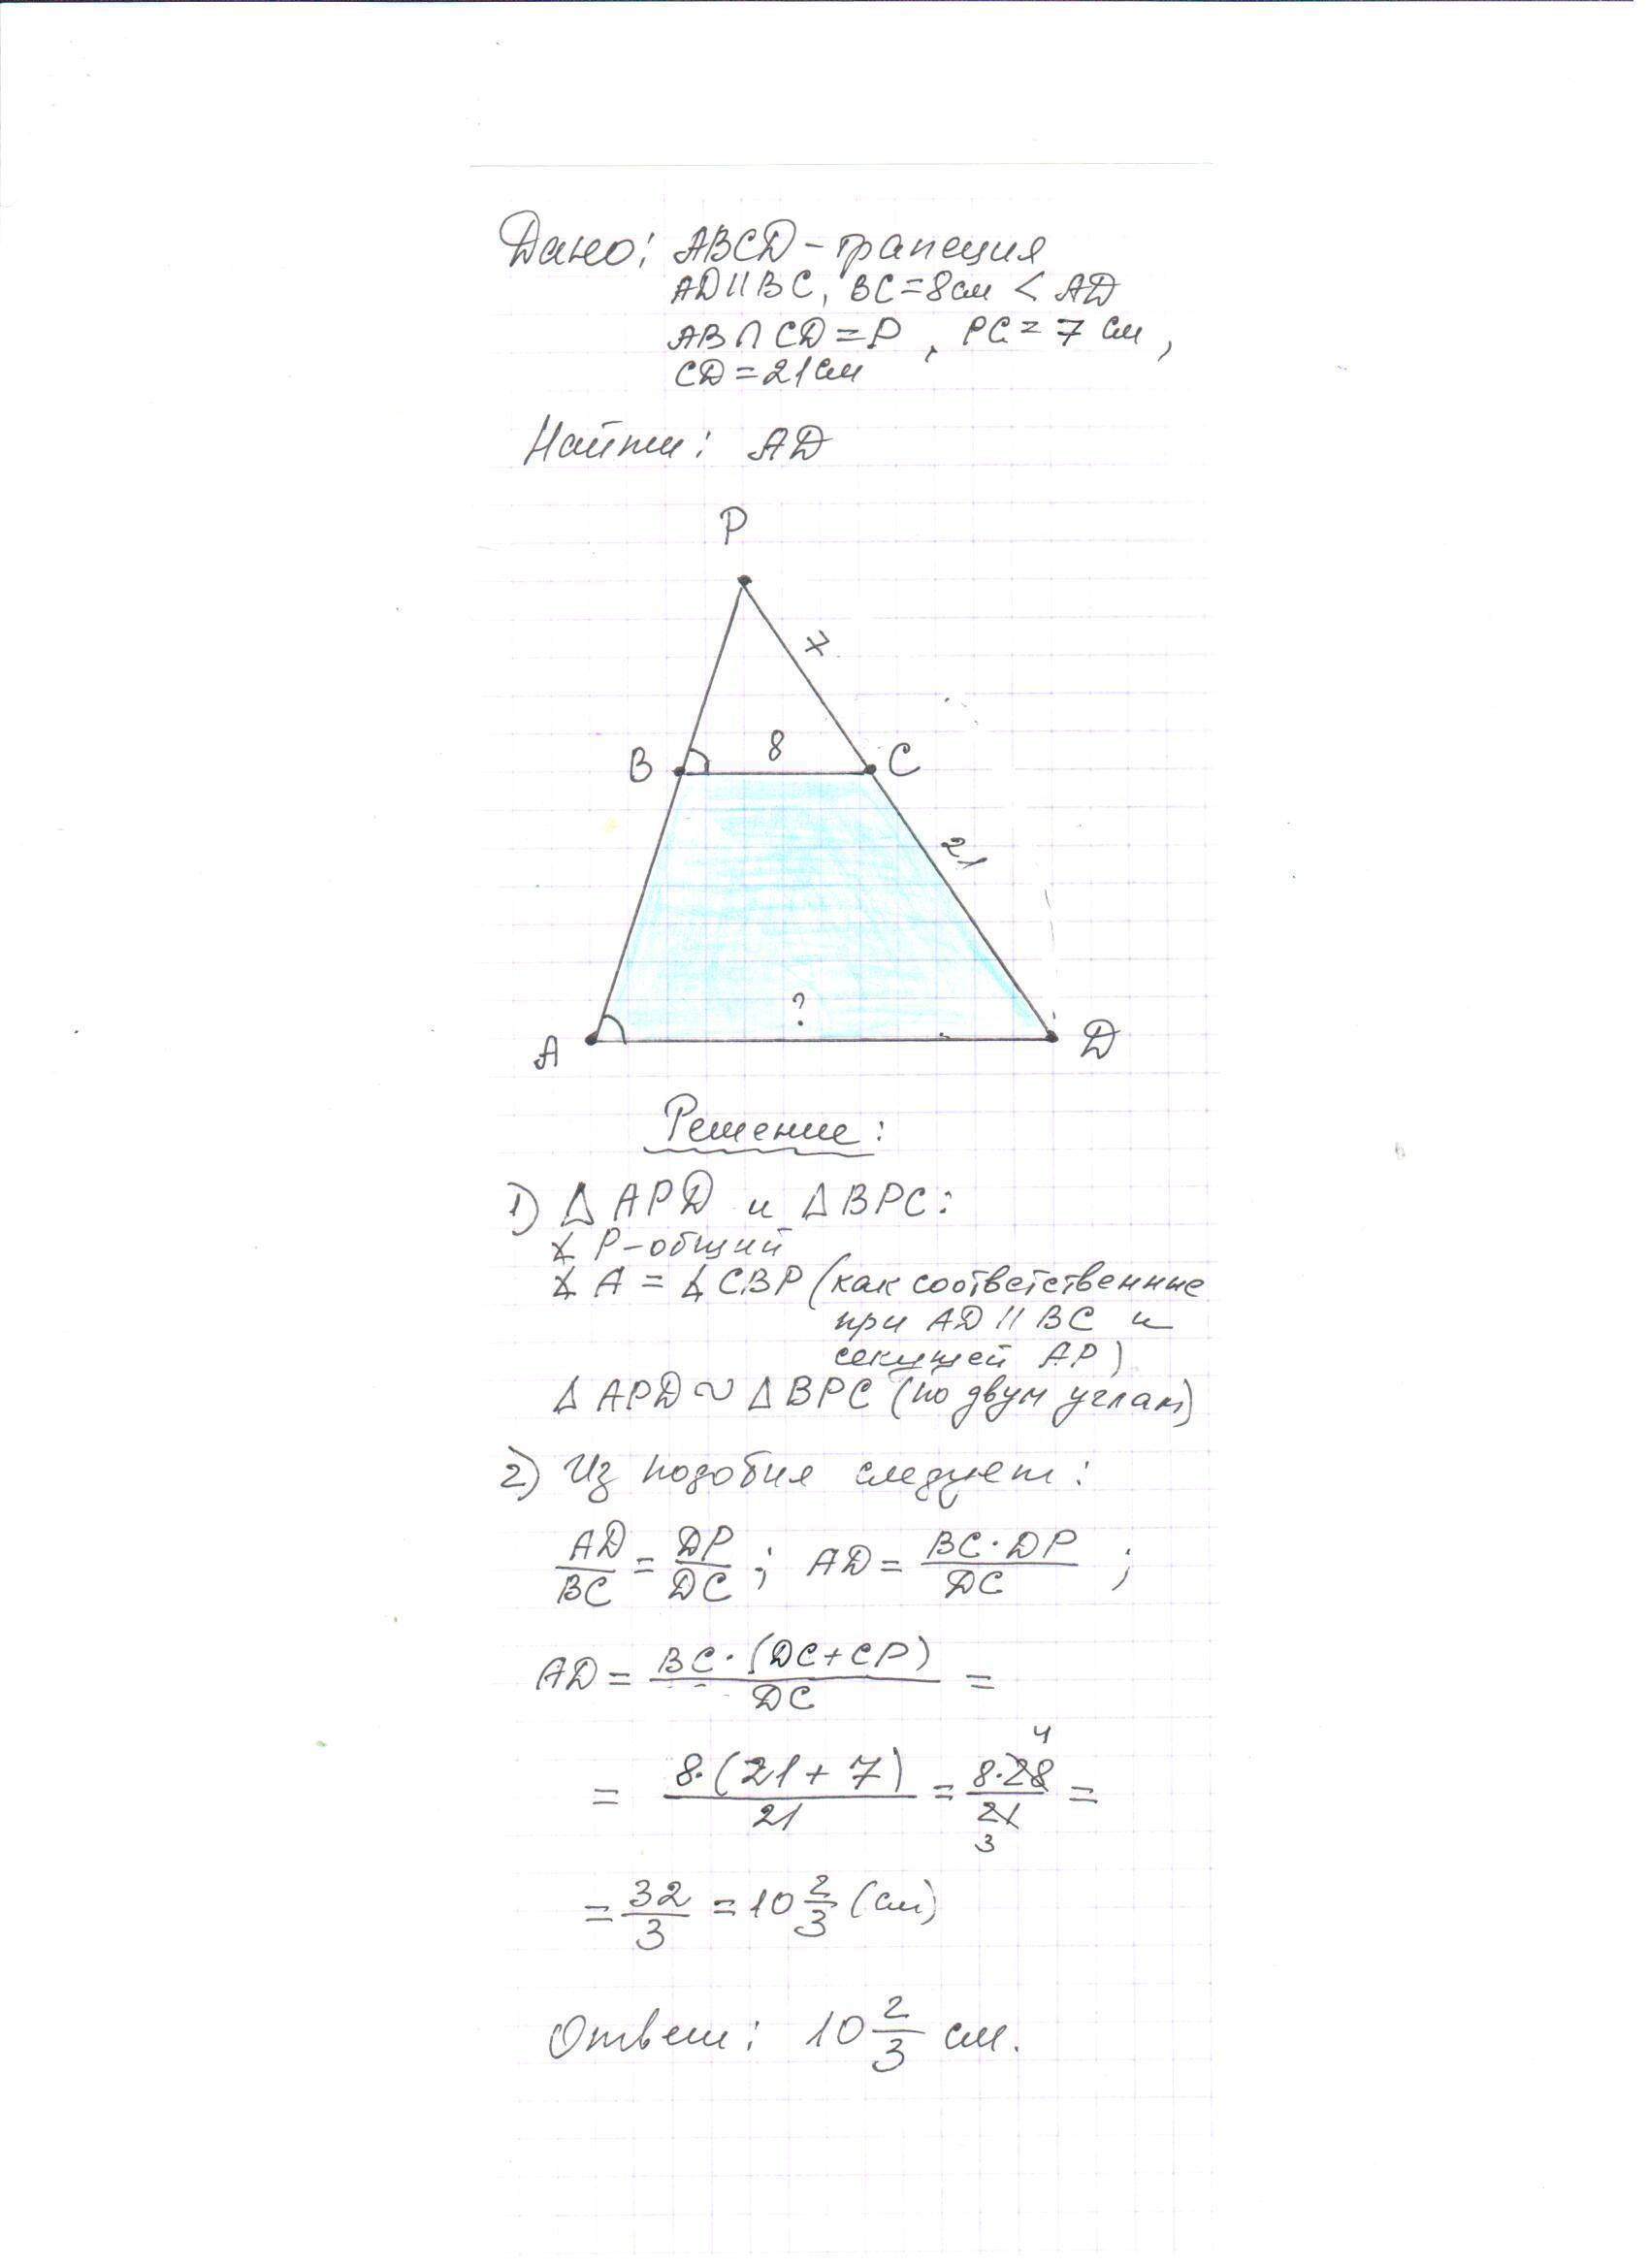 Дано: ABCD - трапеция
AD || BC, BC = 8 см < AD
AB ∩ CD = P, PC = 7 см,
CD = 21 см
Найти: AD
P
7
B 8 C
21
?
A D
Решение:
1) Δ APD и Δ BPC:
∡ P - общий
∡ A = ∡ CBP (как соответственные
при AD || BC и
секущей AP)
Δ APD ~ Δ BPC (по двум углам)
2) Из подобия следует:
AD/BC = DP/DC; AD = BC·DP/DC;
AD = BC·(DC+CP)/DC =
= 8·(21+7)/21 = 8·28/21 =
4
3
= 32/3 = 10 2/3 (см)
Ответ: 10 2/3 см.